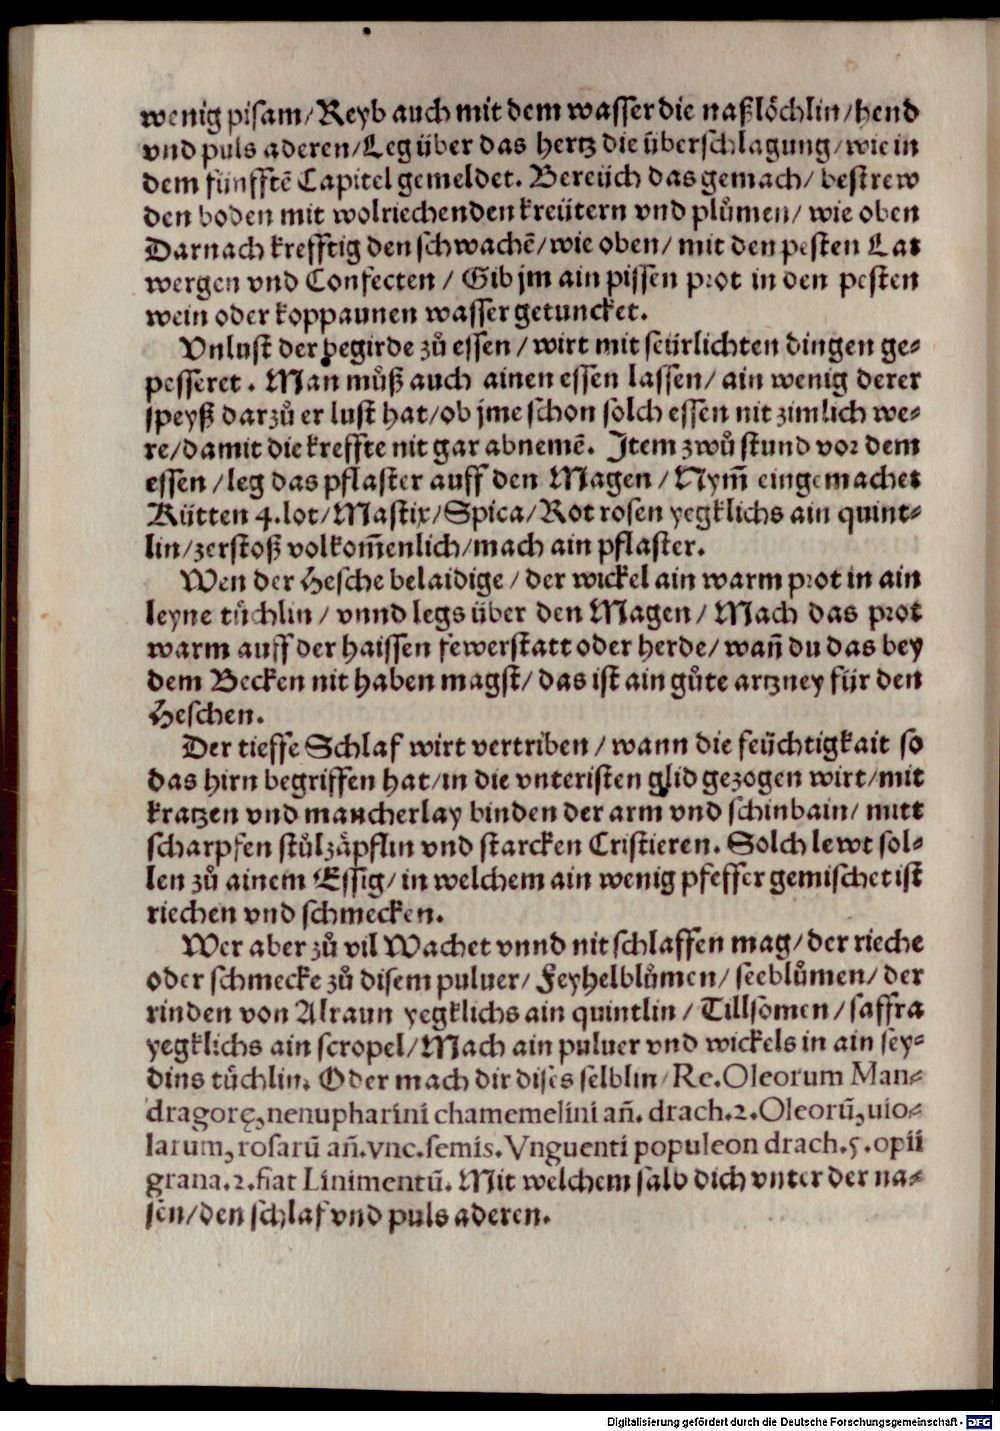 wenig pisam/Reyb auch mit dem wasser die naßlöchlin/hend
vnd puls aderen/Leg über das hertz die überschlagung/wie in
dem fünfftē Capitel gemeldet. Bereüch das gemach/ bestrew
den boden mit wolriechenden kreütern vnd plůmen/ wie oben
Darnach krefftig den schwachē/wie oben/ mit den pesten Lat
wergen vnd Confecten / Gib jm ain pissen prot in den pesten
wein oder koppaunen wasser getuncket.
Vnlust der pegirde zů essen / wirt mit seürlichten dingen ge⸗
pesseret . Man můß auch ainen essen lassen/ ain wenig derer
speyß darzů er lust hat/ob jme schon solch essen nit zimlich we⸗
re/damit die kreffte nit gar abnemē. Item zwů stund vor dem
essen /leg das pflaster auff den Magen / Nym̄ eingemachet
Kütten 4.lot/Mastix/Spica/Rot rosen yegklichs ain quint⸗
lin/zerstoß volkom̄enlich/mach ain pflaster.
Wen der Hesche belaidige / der wickel ain warm prot in ain
leyne tüchlin / vnnd legs über den Magen / Mach das prot
warm auff der haissen fewerstatt oder herde/ wañ du das bey
dem Becken nit haben magst/ das ist ain gůte artzney für den
Heschen.
Der tieffe Schlaf wirt vertriben / wann die feüchtigkait so
das hirn begriffen hat/in die vnteristen glid gezogen wirt/mit
kratzen vnd mancherlay binden der arm vnd schinbain/ mitt
scharpfen stůlzäpflin vnd starcken Cristieren. Solch lewt sol⸗
len zů ainem Essig/ in welchem ain wenig pfeffer gemischet ist
riechen vnd schmecken.
Wer aber zů vil Wachet vnnd nit schlaffen mag/ der rieche
oder schmecke zů disem puluer/ Feyhelblůmen/ seeblůmen/ der
rinden von Alraun yegklichs ain quintlin / Tillsomen / saffra
yegklichs ain scropel/Mach ain puluer vnd wickels in ain sey⸗
dins tüchlin. Oder mach dir dises selblin/Re.Oleorum Man⸗
dragorę,nenupharini chamemelini añ. drach.2.Oleorū,uio⸗
larum,rosarū añ.vnc.semis.Vnguenti populeon drach.5.opii
grana.2.fiat Linimentū. Mit welchem salb dich vnter der na⸗
sen/den schlaf vnd puls aderen.
Digitalisierung gefördert durch die Deutsche Forschungsgemeinschaft - DFG